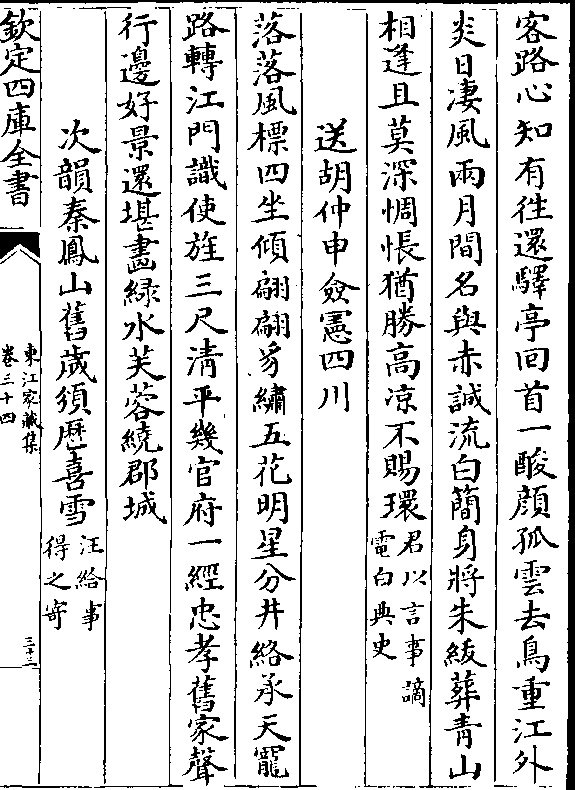 客路心知有徃還驛亭回首一酸顔孤雲去鳥重江外
炎日凄風兩月間名與赤誠流白簡身將朱紱葬青山
相逢且莫深惆悵猶勝高凉不賜環君以言事謫
電白典史
送胡仲申僉憲四川
落落風標四坐傾翩翩豸繡五花明星分井絡承天寵
路轉江門識使旌三尺清平幾官府一經忠孝舊家聲
行邊好景還堪畫緑水芙蓉繞郡城
次韻秦鳳山舊歲須厯喜雪汪給事
得之寄
欽定四庫全書
東江家藏集
卷三十四
三十三